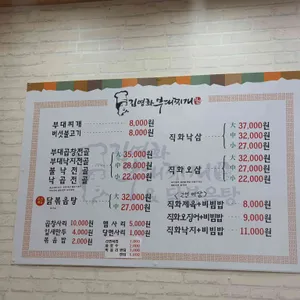 김영화부대찌개
부대찌개 8,000원
버섯불고기 8,000원
부대곱창전골
부대낙지전골
불낙전골
낙곱전골
大 35,000원
中 28,000원
小 22,000원
닭볶음탕
大 32,000원
中 27,000원
곱창사리 10,000원
김새만두 4,000원
볶음밥 2,000원
햄사리 5,000원
당면사리 1,000원
직화낙삼
大 37,000원
中 32,000원
小 27,000원
직화오삼
大 32,000원
中 27,000원
小 22,000원
직화제육+비빔밥 8,000원
직화오징어+비빔밥 9,000원
직화낙지+비빔밥 11,000원